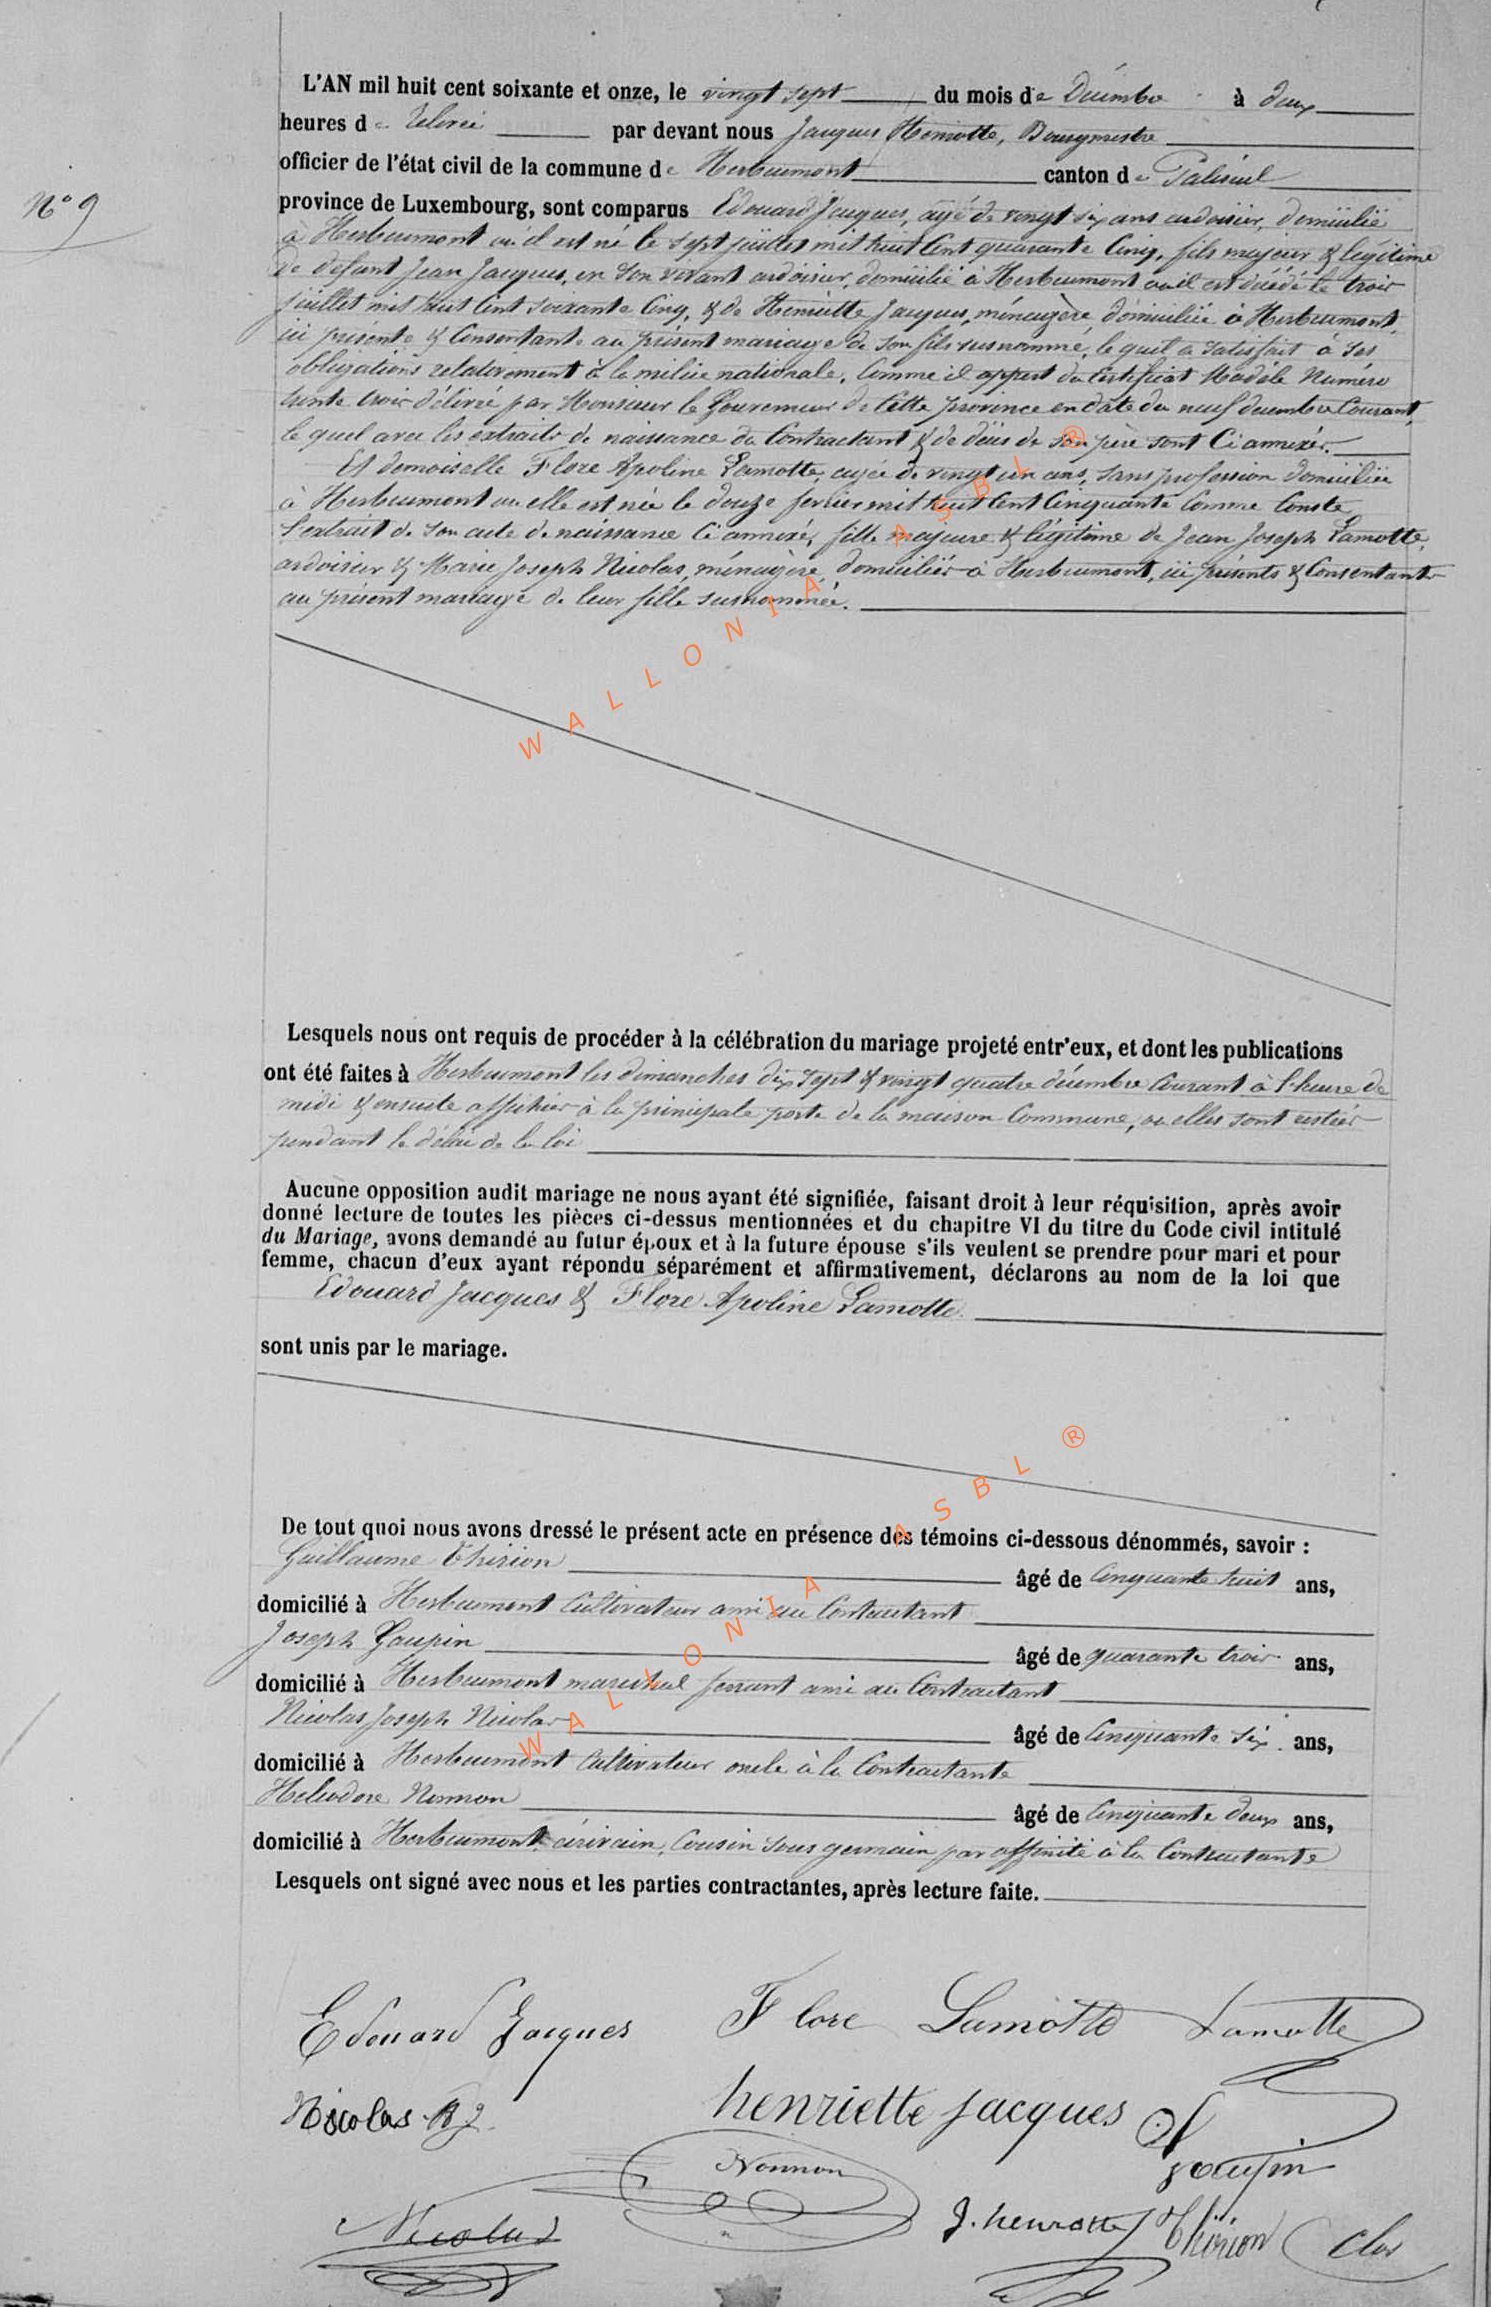 N° 9
L'AN mil huit cent soixante et onze, le vingt sept du mois de Décembre à deux
heures de relevée par devant nous Jacques Henrotte, Bourgmestre
officier de l'état civil de la commune de Herbeumont canton de Paliseul
province de Luxembourg, sont comparus Edouard Jacques, âgé de vingt six ans ardoisier, domicilié
à Herbeumont où il est né le sept juillet mil huit Cent quarante Cinq, fils majeur & légitime
de defunt Jean Jacques, en son vivant ardoisier, domicilié à Herbeumont où il est décédé le trois
juillet mil huit Cent soixante Cinq, & de Henriette Jacques, ménagère domiciliée à Herbeumont,
ici présente & Consentante au présent mariage de son fils susnommé, le quel a satisfait à ses
obligations relativement à la milice nationale, Comme il appert du Certificat Modele Numéro
trente trois délivré par Monsieur le Gouverneur de Cette province en date du neuf decembre Courant,
le quel avec les extraits de naissance du Contractant & de décès de son père sont Ci annexés.
Et demoiselle Flore Apoline Lamotte, agée de vingt un ans, sans profession domiciliée
à Herbeumont ou elle est née le douze fevrier mil huit Cent Cinquante Comme Conste
l'extrait de son acte de naissance Ci annexé, fille majeure & légitime de Jean Joseph Lamotte,
ardoisier & Marie Joseph Nicolas, ménagère, domiciliés à Herbeumont, ici présents & Consentants
au présent mariage de leur fille susnommée.
WALLONIA ASBL ®
Lesquels nous ont requis de procéder à la célébration du mariage projeté entr'eux, et dont les publications
ont été faites à Herbeumont les dimanches dix sept & vingt quatre décembre Courant à l'heure de
midi & ensuite affichées à la principale porte de la maison Commune, ou elles sont restées
pendant le délai de la loi
Aucune opposition audit mariage ne nous ayant été signifiée, faisant droit à leur réquisition, après avoir
donné lecture de toutes les pièces ci-dessus mentionnées et du chapitre VI du titre du Code civil intitulé
du Mariage, avons demandé au futur époux et à la future épouse s'ils veulent se prendre pour mari et pour
femme, chacun d'eux ayant répondu séparément et affirmativement, déclarons au nom de la loi que
Edouard Jacques & Flore Apoline Lamotte.
sont unis par le mariage.
De tout quoi nous avons dressé le présent acte en présence des témoins ci-dessous dénommés, savoir :
Guillaume Thirion âgé de Cinquante huit ans,
domicilié à Herbeumont Cultivateur ami au Contractant
Joseph Goupin âgé de quarante trois ans,
domicilié à Herbeumont marechal ferrant ami au Contractant
Nicolas Joseph Nicolas âgé de Cinquante six ans,
domicilié à Herbeumont Cultivateur oncle à la Contractante
Heliodore Nonnon âgé de Cinquante deux ans,
domicilié à Herbeumont écrivain, Cousin sous germain par affinité à la Contractante
Lesquels ont signé avec nous et les parties contractantes, après lecture faite.
WALLONIA ASBL ®
Edouard Jacques Flore Lamotte Lamotte
Nicolas henriette jacques
Nonnon Goupin
Nicolas J. henrotte Thirion